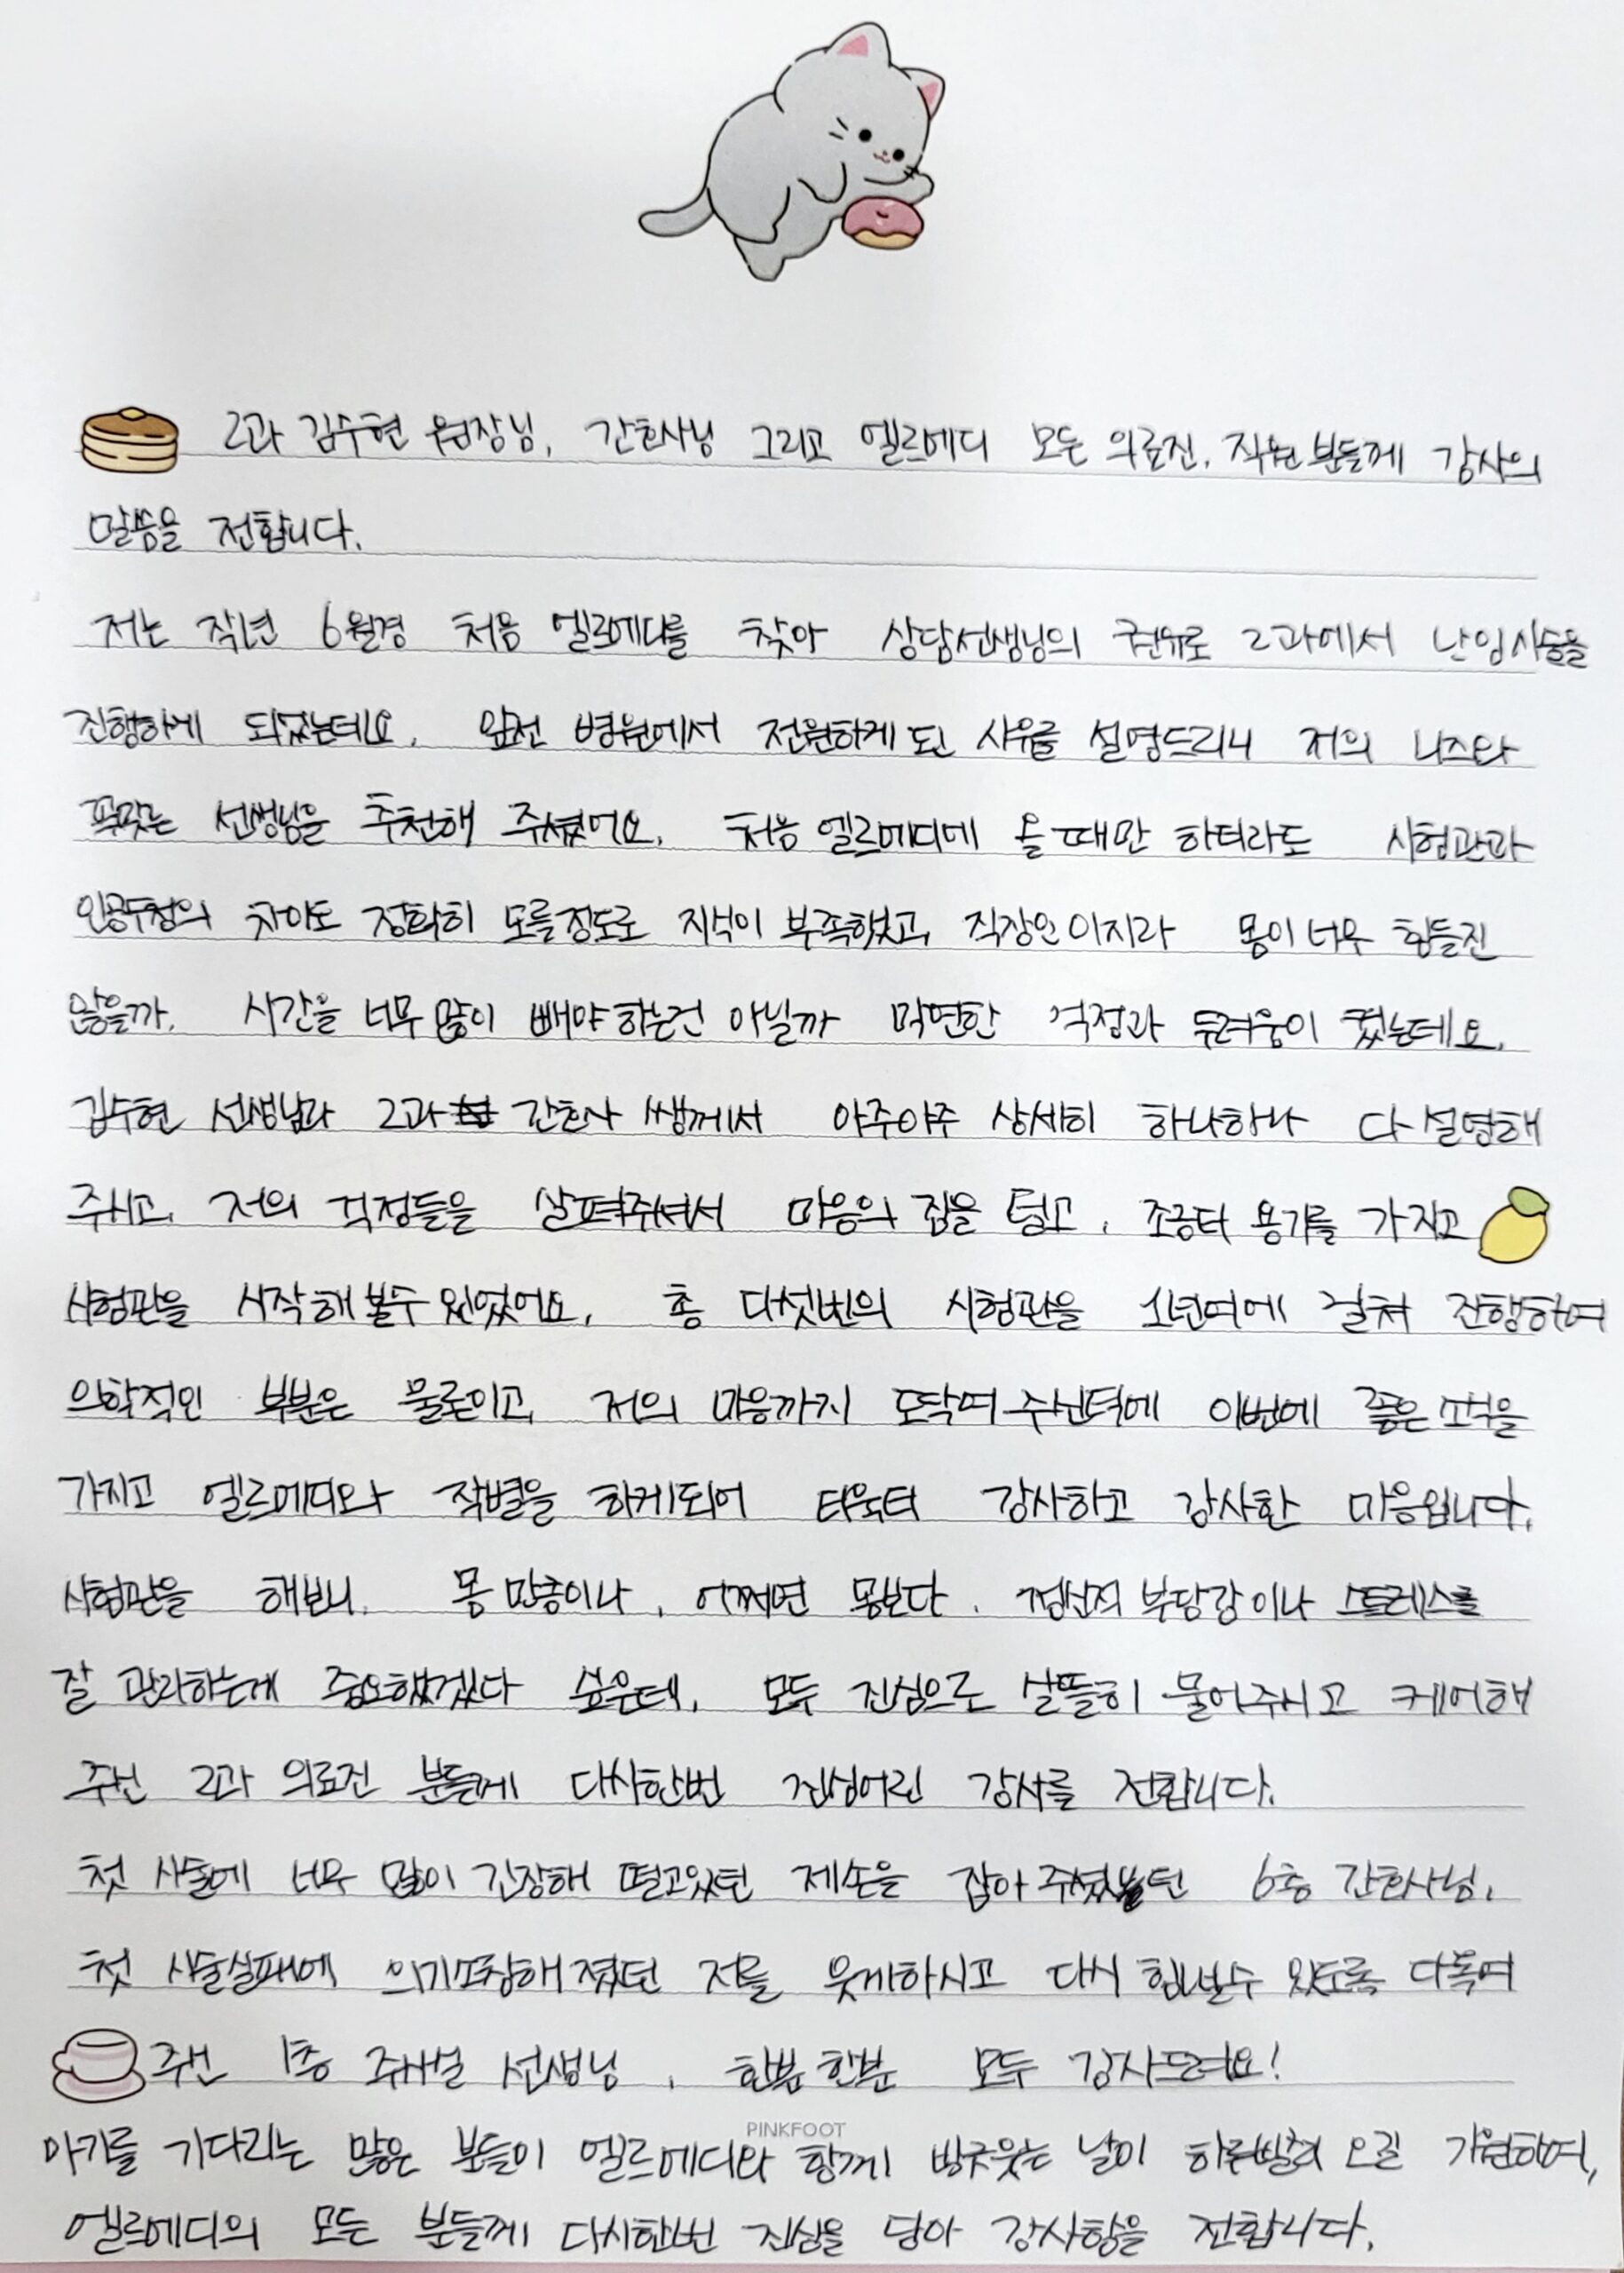 2과 김수현 원장님, 간호사님 그리고 엘르메디 모든 의료진, 직원분들께 감사의
말씀을 전합니다.
저는 작년 6월경 처음 엘르메디를 찾아 상담선생님의 권유로 2과에서 난임시술을
진행하게 되었는데요. 앞전 병원에서 전원하게 된 사유를 설명드리니 저의 니즈와
꼭맞는 선생님을 추천해 주셨어요. 처음 엘르메디에 올때만 하더라도 시험관과
인공수정의 차이도 정확히 모를정도로 지식이 부족했고, 직장인이지라 몸이 너무 힘들진
않을까, 시간을 너무 많이 빼야하는건 아닐까 막연한 걱정과 두려움이 컸는데요,
김수현 선생님과 2과 간호사 쌤께서 아주아주 상세히 하나하나 다 설명해
주시고, 저의 걱정들을 살펴주셔서 마음의 짐을 덜고, 조금더 용기를 가지고
시험관을 시작해볼수있었어요. 총 다섯번의 시험관을 1년여에 걸쳐 진행하며
의학적인 부분은 물론이고, 저의 마음까지 도닥여주신덕에 이번에 좋은소식을
가지고 엘르메디와 작별을 하게되어 더욱더 감사하고 감사한 마음입니다.
시험관을 해보니, 몸 만큼이나, 어쩌면 몸보다, 정신적 부담감이나 스트레스를
잘 관리하는게 중요했겠다 싶은데, 모두 진심으로 살뜰히 물어주시고 케어해
주신 2과 의료진 분들께 다시한번 진심어린 감사를 전합니다.
첫 시술에 너무 많이 긴장해 떨고있던 제손을 잡아주셨던 6층 간호사님,
첫 시술실패에 의기소침해졌던 저를 웃게하시고 다시 힘낼수 있도록 다독여
주신 1층 주사실 선생님, 한분한분 모두 감사드려요!
PINKFOOT
아기를 기다리는 많은 분들이 엘르메디와 함께 방긋웃는 날이 하루빨리 오길 기원하며,
엘르메디의 모든 분들께 다시한번 진심을 담아 감사함을 전합니다.